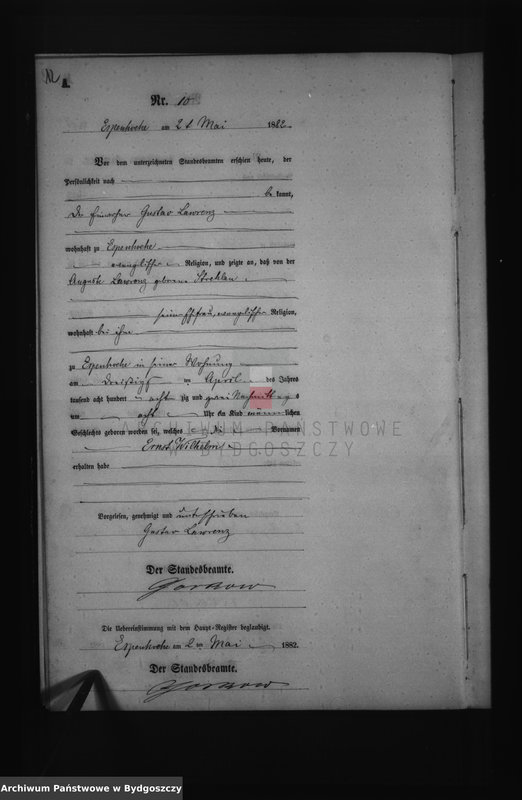 A.
Nr. 10
Espenhöhe am 2 t Mai 1882
Vor dem unterzeichneten Standesbeamten erschien heute, der
Persönlichkeit nach
be kannt,
Gustav Lawrenz
wohnhaft zu Espenhöhe
evangelischer Religion, und zeigte an, daß von der
Auguste Lawrenz geborene
seiner Ehefrau, evangelischer Religion,
wohnhaft bei ihm
zu Espenhöhe in seiner Wohnung
am Dreißigs ten April des Jahres
tausend acht hundert acht zig und zwei Nachmittags
um acht Uhr ein Kind männlichen
Geschlechts geboren worden sei, welches die Vornamen
Ernst Wilhelm
erhalten habe
Vorgelesen, genehmigt und unterschrieben
Gustav Lawrenz
Der Standesbeamte.
Die Uebereinstimmung mit dem Haupt-Register beglaubigt.
Espenhöhe am 2 ten Mai 1882.
Der Standesbeamte.
ARCHIWUM PAŃSTWOWE
W BYDGOSZCZY
Archiwum Państwowe w Bydgoszczy